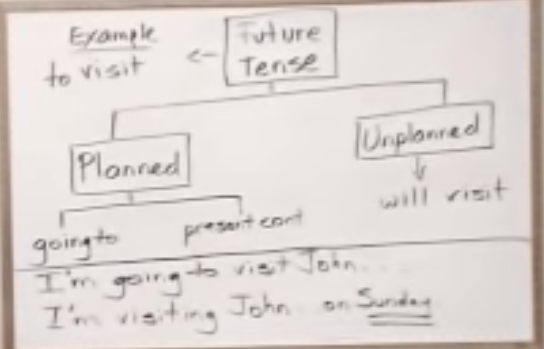 Example
to visit
Future
Tense
Planned
Unplanned
going to
present cont
will visit
I'm going to visit John....
I'm visiting John on Sunday